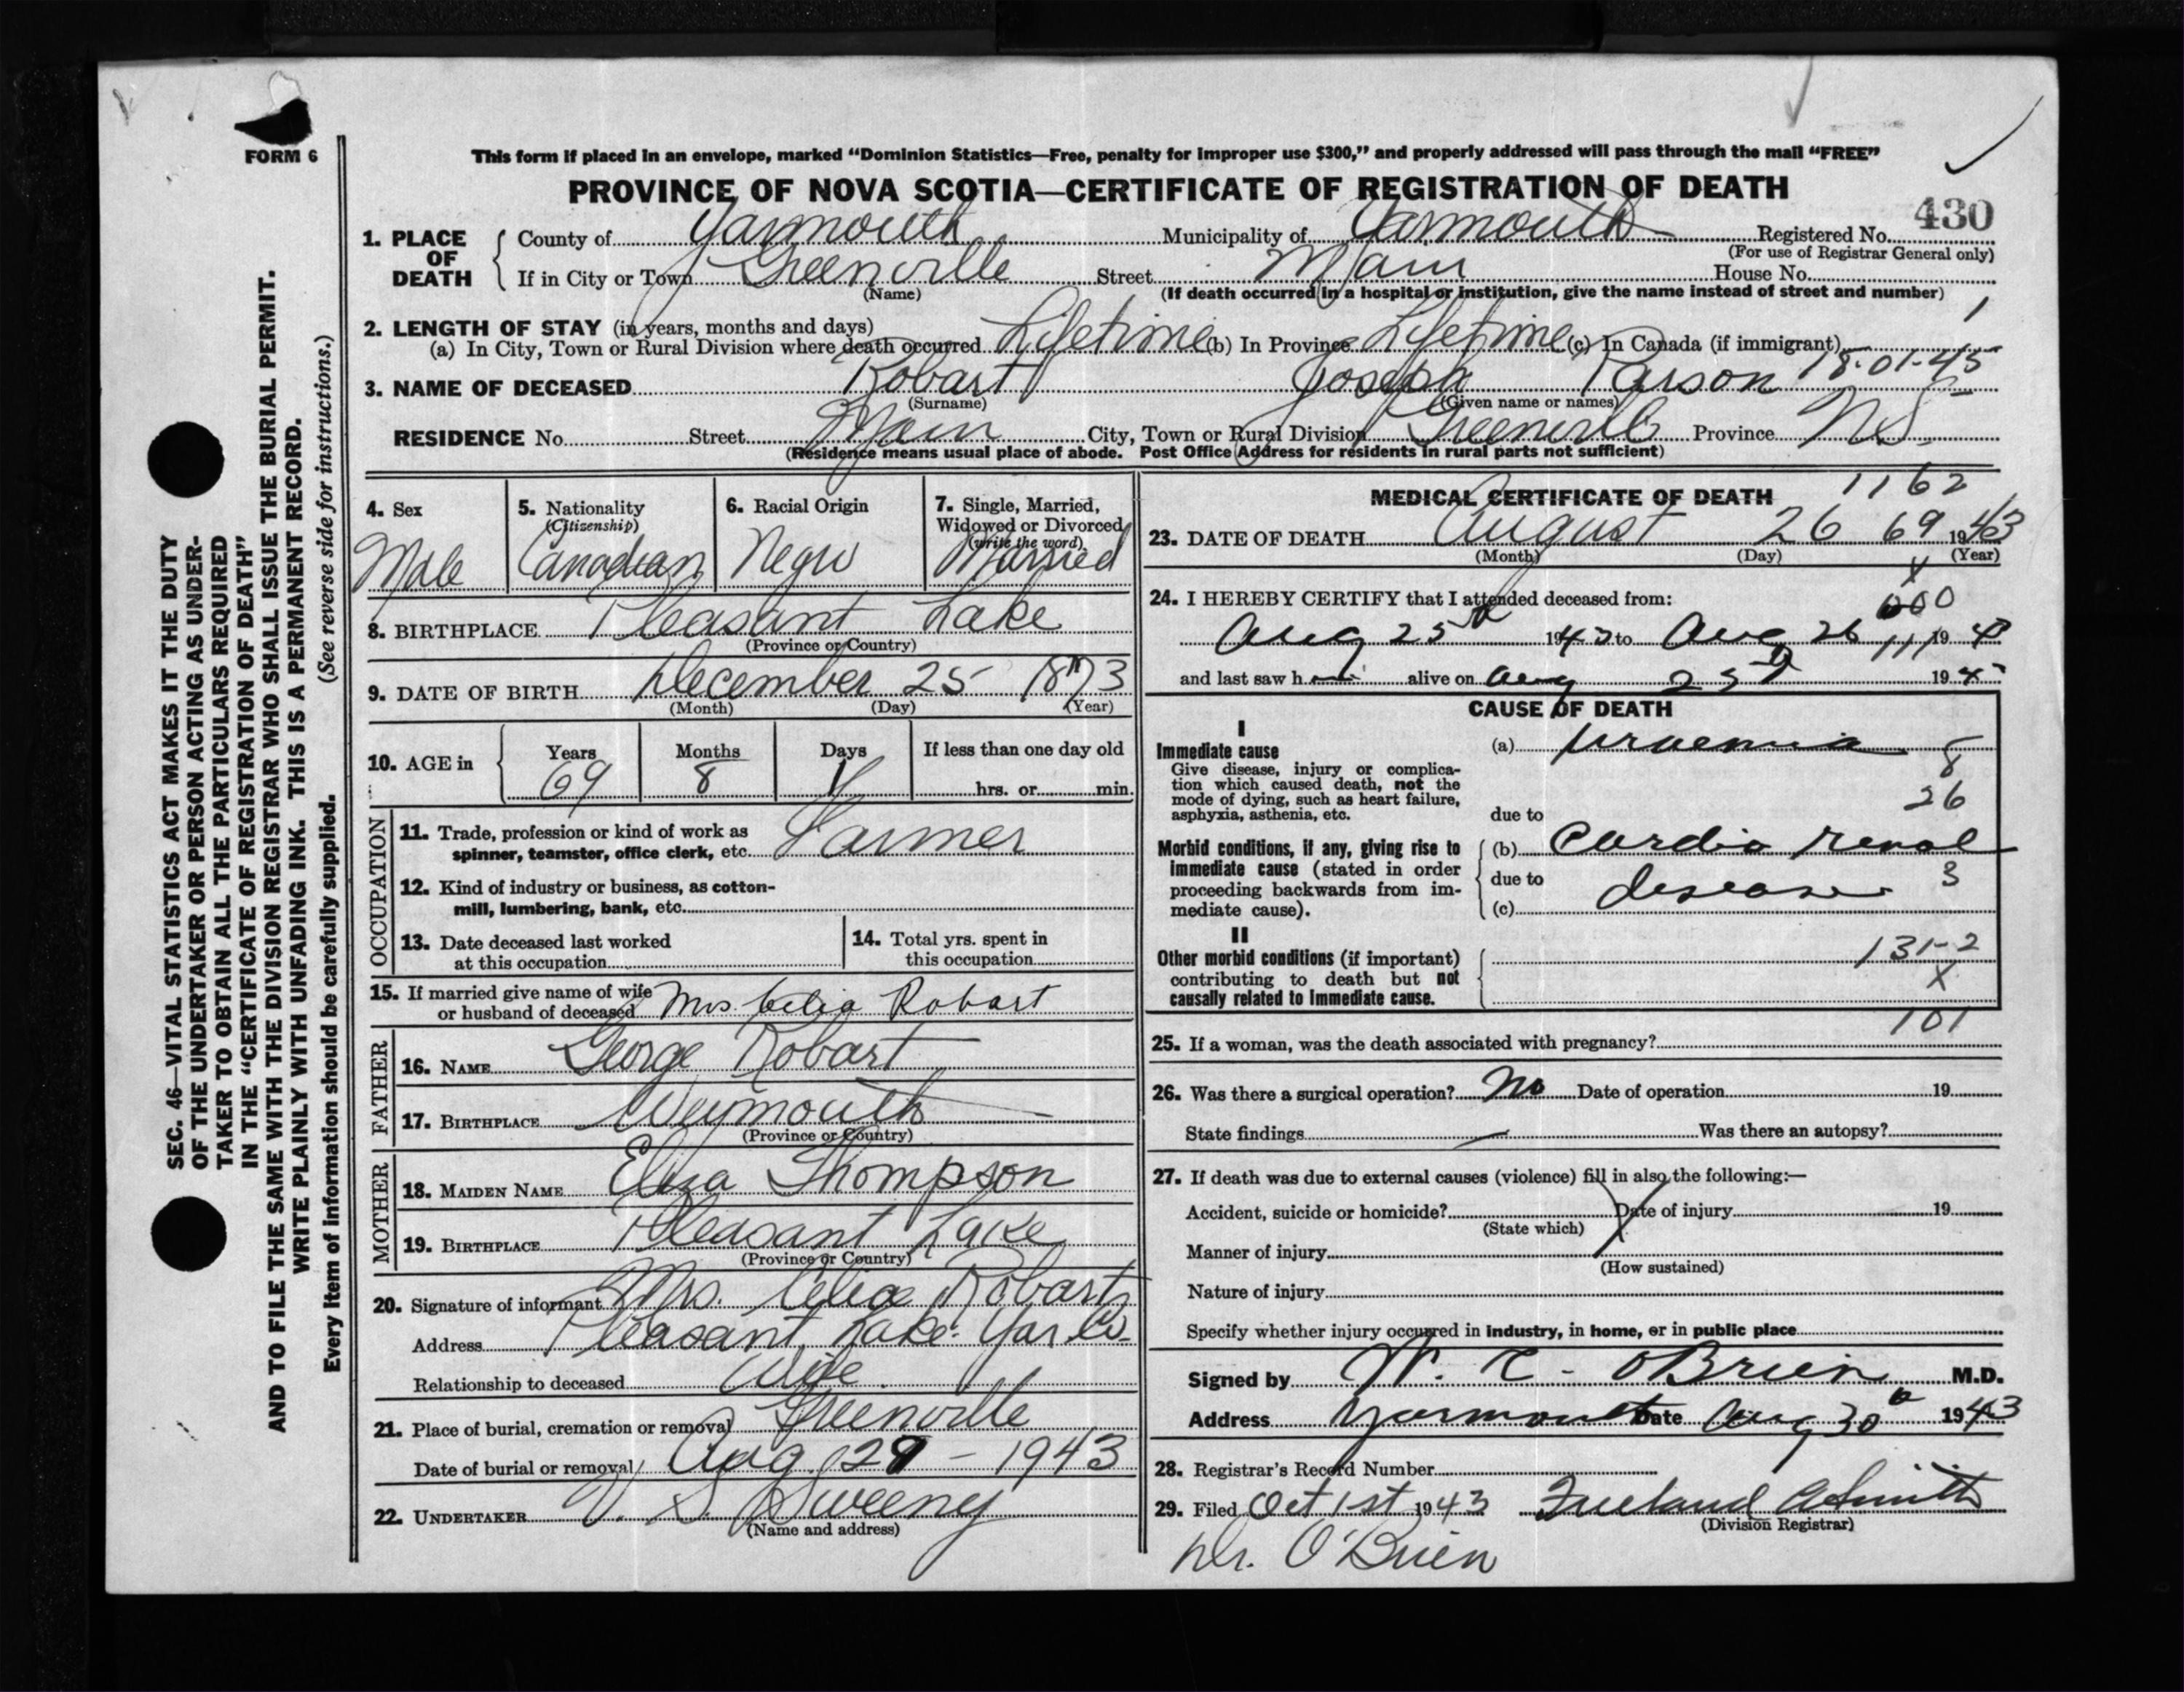 FORM 6
This form if placed in an envelope, marked “Dominion Statistics—Free, penalty for improper use $300,” and properly addressed will pass through the mail “FREE”
PROVINCE OF NOVA SCOTIA—CERTIFICATE OF REGISTRATION OF DEATH
430
1. PLACE OF DEATH
County of Yarmouth Municipality of Yarmouth Registered No.
(For use of Registrar General only)
If in City or Town Greenville Street Main House No.
(Name) (If death occurred in a hospital or institution, give the name instead of street and number)
2. LENGTH OF STAY (in years, months and days) 1
(a) In City, Town or Rural Division where death occurred Lifetime (b) In Province Lifetime (c) In Canada (if immigrant)
3. NAME OF DECEASED Robart Joseph Parson 18-01-45
(Surname) (Given name or names)
RESIDENCE No. Street Main City, Town or Rural Division Greenville Province N.S.
(Residence means usual place of abode. Post Office Address for residents in rural parts not sufficient)
4. Sex
Male
5. Nationality
(Citizenship)
Canadian
6. Racial Origin
Negro
7. Single, Married,
Widowed or Divorced
(write the word)
Married
8. BIRTHPLACE Pleasant Lake
(Province or Country)
9. DATE OF BIRTH December 25 1873
(Month) (Day) (Year)
10. AGE in Years Months Days If less than one day old
69 8 1 hrs. or min.
OCCUPATION
11. Trade, profession or kind of work as
spinner, teamster, office clerk, etc. Farmer
12. Kind of industry or business, as cotton-
mill, lumbering, bank, etc.
13. Date deceased last worked
at this occupation
14. Total yrs. spent in
this occupation
15. If married give name of wife
or husband of deceased Mrs Celia Robart
FATHER
16. NAME George Robart
17. BIRTHPLACE Weymouth
(Province or Country)
MOTHER
18. MAIDEN NAME Eliza Thompson
19. BIRTHPLACE Pleasant Lake
(Province or Country)
20. Signature of informant Mrs. Celia Robart
Address Pleasant Lake. Yar. Co.
Relationship to deceased Wife.
21. Place of burial, cremation or removal Greenville
Date of burial or removal Aug. 29 - 1943
22. UNDERTAKER V. S. Sweeny
(Name and address)
MEDICAL CERTIFICATE OF DEATH 1162
23. DATE OF DEATH August 26 69 1943
(Month) (Day) (Year)
X
24. I HEREBY CERTIFY that I attended deceased from: 000
Aug 25th 1943 to Aug 26 111 1943
and last saw him alive on Aug 25th 194
CAUSE OF DEATH
I
Immediate cause
Give disease, injury or complica-
tion which caused death, not the
mode of dying, such as heart failure,
asphyxia, asthenia, etc.
(a) Uraemia 8
8
26
due to
Morbid conditions, if any, giving rise to
immediate cause (stated in order
proceeding backwards from im-
mediate cause).
(b) Cardio renal
due to disease 3
(c)
II
Other morbid conditions (if important)
contributing to death but not
causally related to immediate cause.
131-2
X
101
25. If a woman, was the death associated with pregnancy?
26. Was there a surgical operation? No Date of operation 19
State findings Was there an autopsy?
27. If death was due to external causes (violence) fill in also the following:—
Accident, suicide or homicide? Date of injury 19
(State which)
Manner of injury
(How sustained)
Nature of injury
Specify whether injury occurred in industry, in home, or in public place
Signed by W. C. O'Brien M.D.
Address Yarmouth Date Aug 30th 1943
28. Registrar's Record Number
29. Filed Oct 1st 1943 Freeland A Smith
(Division Registrar)
Dr. O'Brien
SEC. 46—VITAL STATISTICS ACT MAKES IT THE DUTY
OF THE UNDERTAKER OR PERSON ACTING AS UNDER-
TAKER TO OBTAIN ALL THE PARTICULARS REQUIRED
IN THE “CERTIFICATE OF REGISTRATION OF DEATH”
AND TO FILE THE SAME WITH THE DIVISION REGISTRAR WHO SHALL ISSUE THE BURIAL PERMIT.
WRITE PLAINLY WITH UNFADING INK. THIS IS A PERMANENT RECORD.
Every item of information should be carefully supplied. (See reverse side for instructions.)